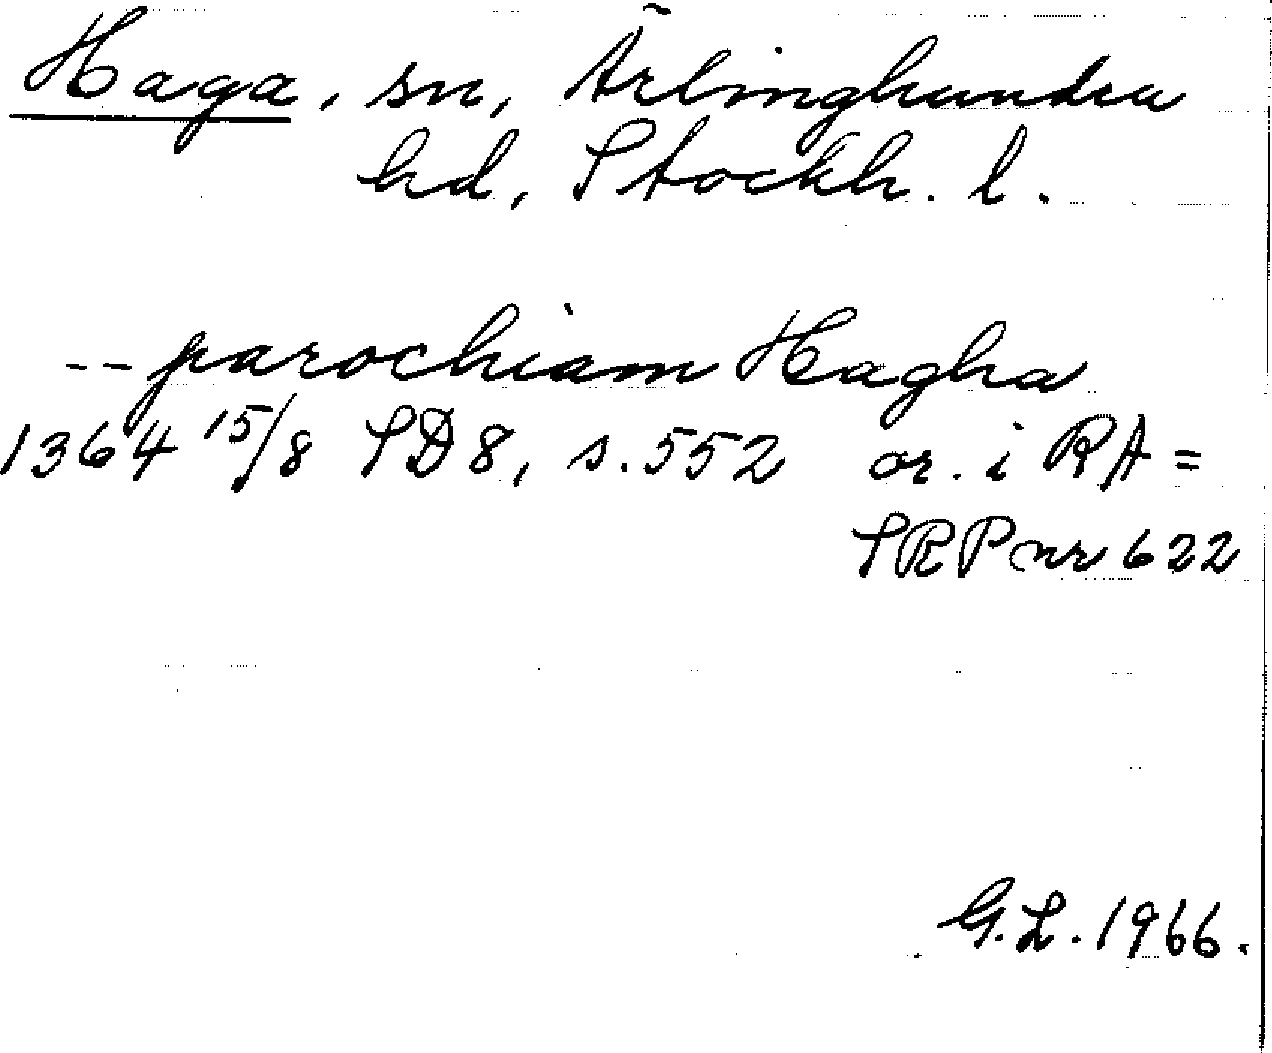 Haga, sn, Ärlinghundra
hd, Stockh. l.
-- parochiam Hagha
1364 15/8 SD 8, s. 552 or. i RA =
SRP nr 622
G. L. 1966.